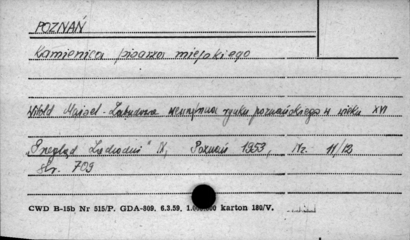 POZNAŃ
Kamienica pisarza miejskiego
Witold Maisel - Zabudowa wewnętrzna rynku poznańskiego w wieku XVI
"Przegląd Zachodni" IX, Poznań 1953, Nr. 11/12
str. 709
CWD B-15b Nr 515/P. GDA-809. 6.3.59. karton 180/V.